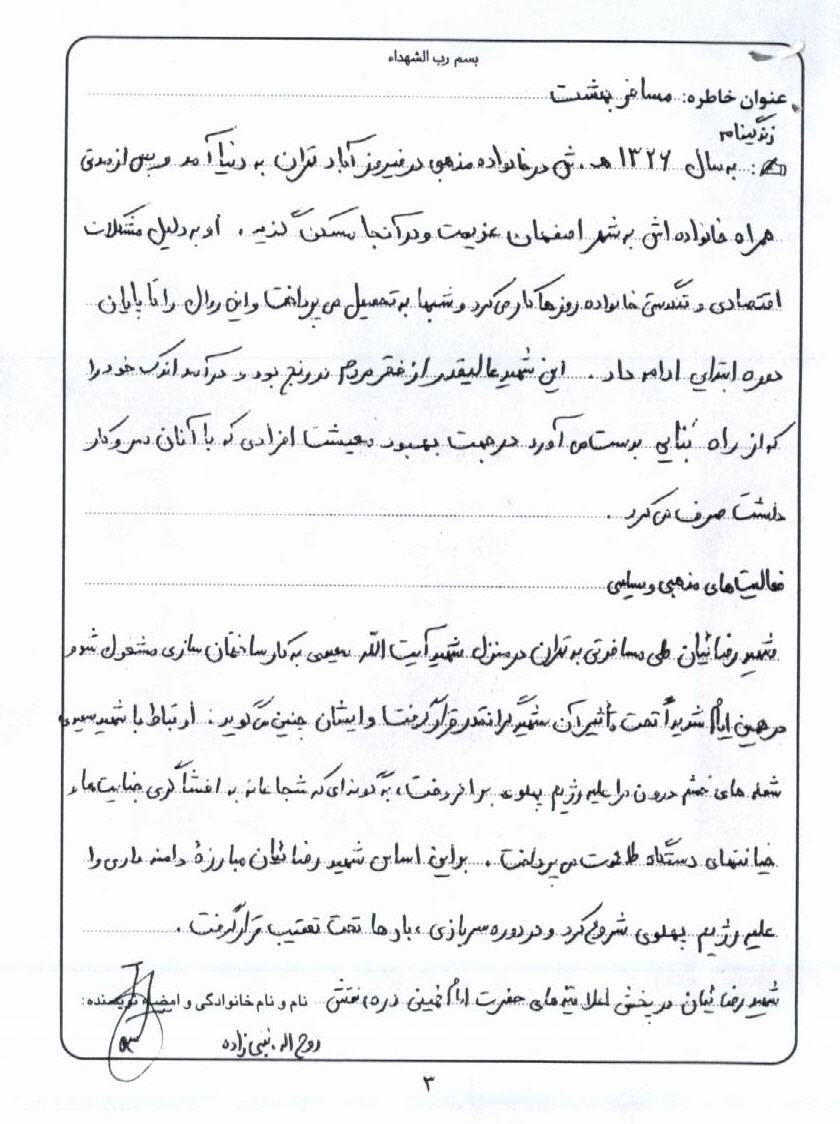 بسم رب الشهداء
عنوان خاطره: مسافر بهشت
زندگینامه
: به سال ۱۳۲۶ هـ.ش در خانواده مذهبی در فیروزآباد تهران به دنیا آمد و پس از مدتی
همراه خانواده اش به شهر اصفهان عزیمت و در آنجا مسکن گزید. او به دلیل مشکلات
اقتصادی و تنگدستی خانواده روزها کار می کرد و شبها به تحصیل می پرداخت و این روال را تا پایان
دوره ابتدایی ادامه داد. این شهید عالیقدر از فقر مردم در رنج بود و درآمد اندک خود را
که از راه بنّایی بدست می آورد در جهت بهبود معیشت افرادی که با آنان سر و کار
داشت صرف می کرد.
فعالیت های مذهبی و سیاسی
شهید رضائیان طی مسافرتی به تهران در منزل شهید آیت الله سعیدی به کار ساختمان سازی مشغول شد و
در همین ایام شدیداً تحت تأثیر آن شهید گرانقدر قرار گرفت و ایشان چنین می گوید: ارتباط با شهید سعیدی
شعله های خشم درون مرا علیه رژیم پهلوی برافروخت، به گونه ای که شجاعانه به افشاگری جنایت ها و
خیانتهای دستگاه طاغوت می پرداخت. براین اساس شهید رضائیان مبارزهٔ دامنه داری را
علیه رژیم پهلوی شروع کرد و در دوره سربازی، بارها تحت تعقیب قرار گرفت.
شهید رضائیان در پخش اعلامیه های حضرت امام خمینی (ره) نقش
نام و نام خانوادگی و امضاء نویسنده:
روح اله نبی زاده
۳